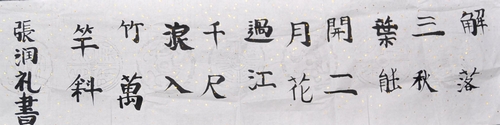 解落
三秋
葉能
開二
月花
過江
千尺
浪入
竹萬
竿斜
張润礼書